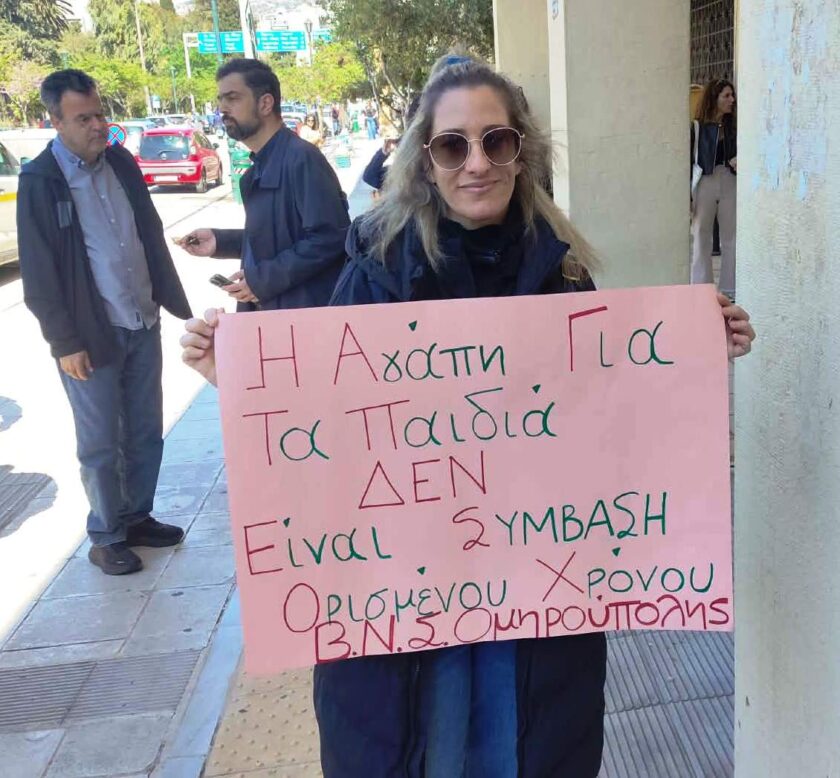 Η Αγάπη Για
Τα Παιδιά
ΔΕΝ
Είναι ΣΥΜΒΑΣΗ
Ορισμένου Χρόνου
Β.Ν.Σ. Ομηρούπολης